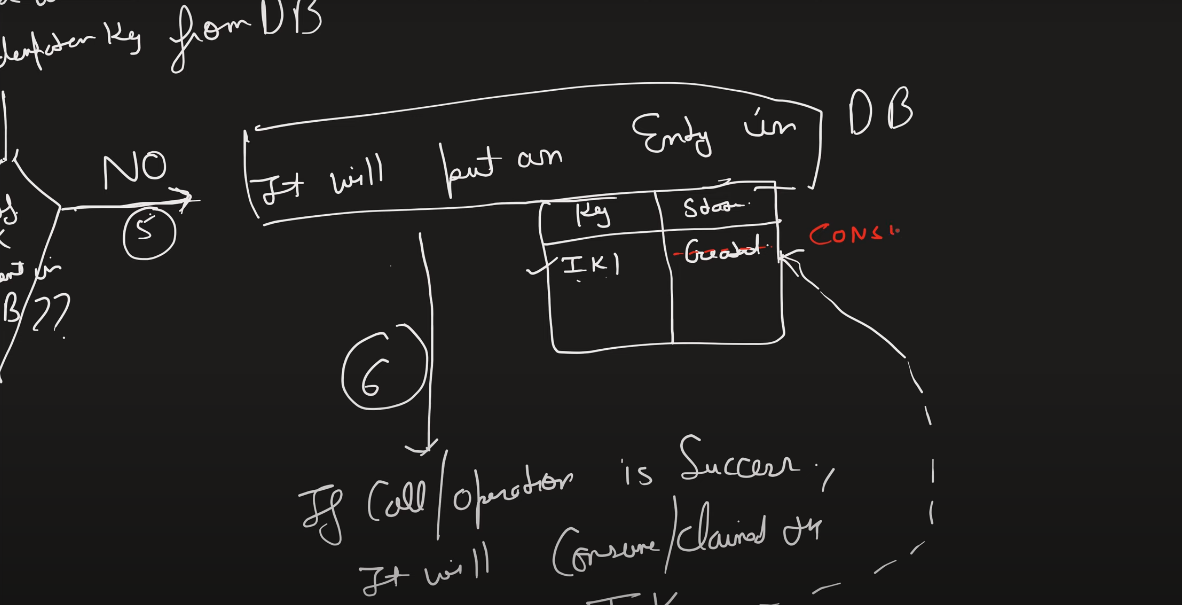 Key from DB
NO
5
It will put an Entry in DB
Key
IK1
Created
CONSU
B??
6
If Call/operation is Success,
It will Consume/claimed
IK